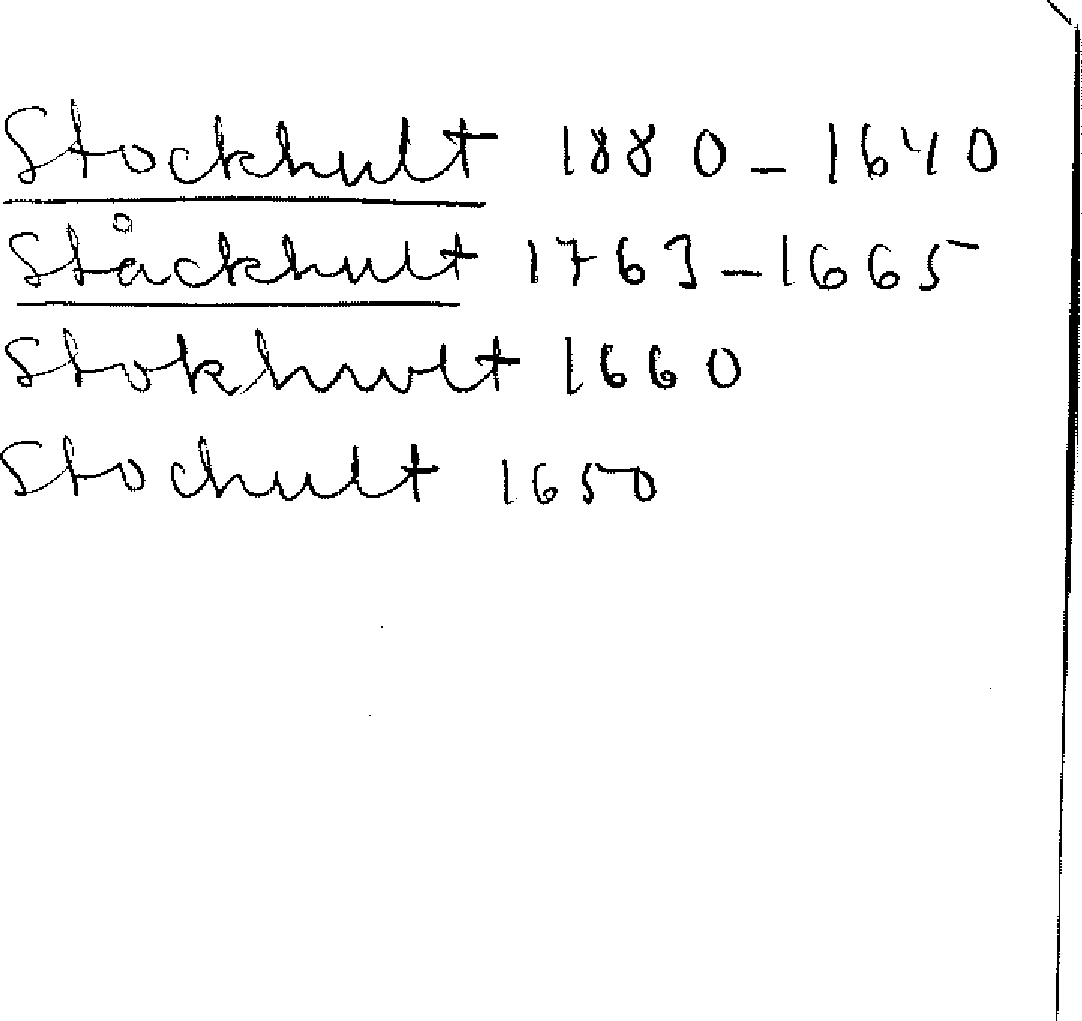 Stockhult 1880-1640
Ståckhult 1763-1665
Stokhwlt 1660
Stochult 1650